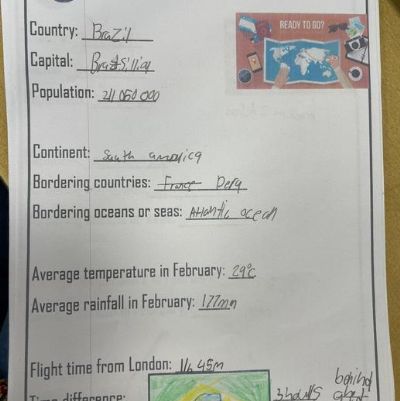 READY TO GO?
Country: Brazil
Capital:
Population: 211 050 000
Continent: South america
Bordering countries: France Peru
Bordering oceans or seas: Atlantic ocean
Average temperature in February: 29°c
Average rainfall in February: 177mm
Flight time from London: 11h 45m
behind
Time difference: 3 hours